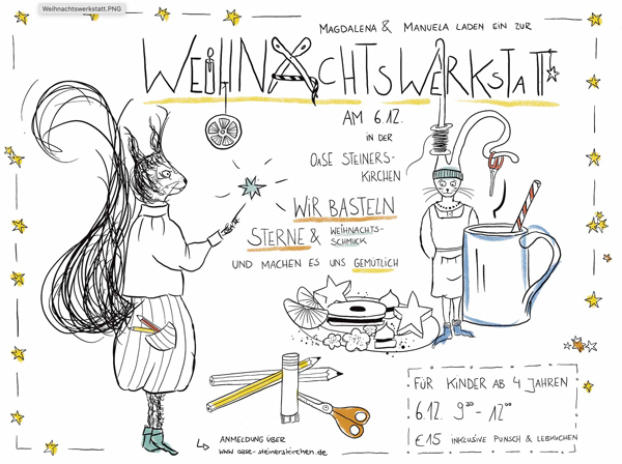 Weihnachtswerkstatt.PNG
MAGDALENA & MANUELA LADEN EIN ZUR
WEIHNACHTSWERKSTATT
AM 6.12.
IN DER
OASE STEINERS-
KIRCHEN
WIR BASTELN
STERNE & WEIHNACHTS-
SCHMUCK
UND MACHEN ES UNS GEMÜTLICH
FÜR KINDER AB 4 JAHREN
6.12. 9³⁰ - 12⁰⁰
€15 INKLUSIVE PUNSCH & LEBKUCHEN
ANMELDUNG ÜBER
www.oase-steinerskirchen.de